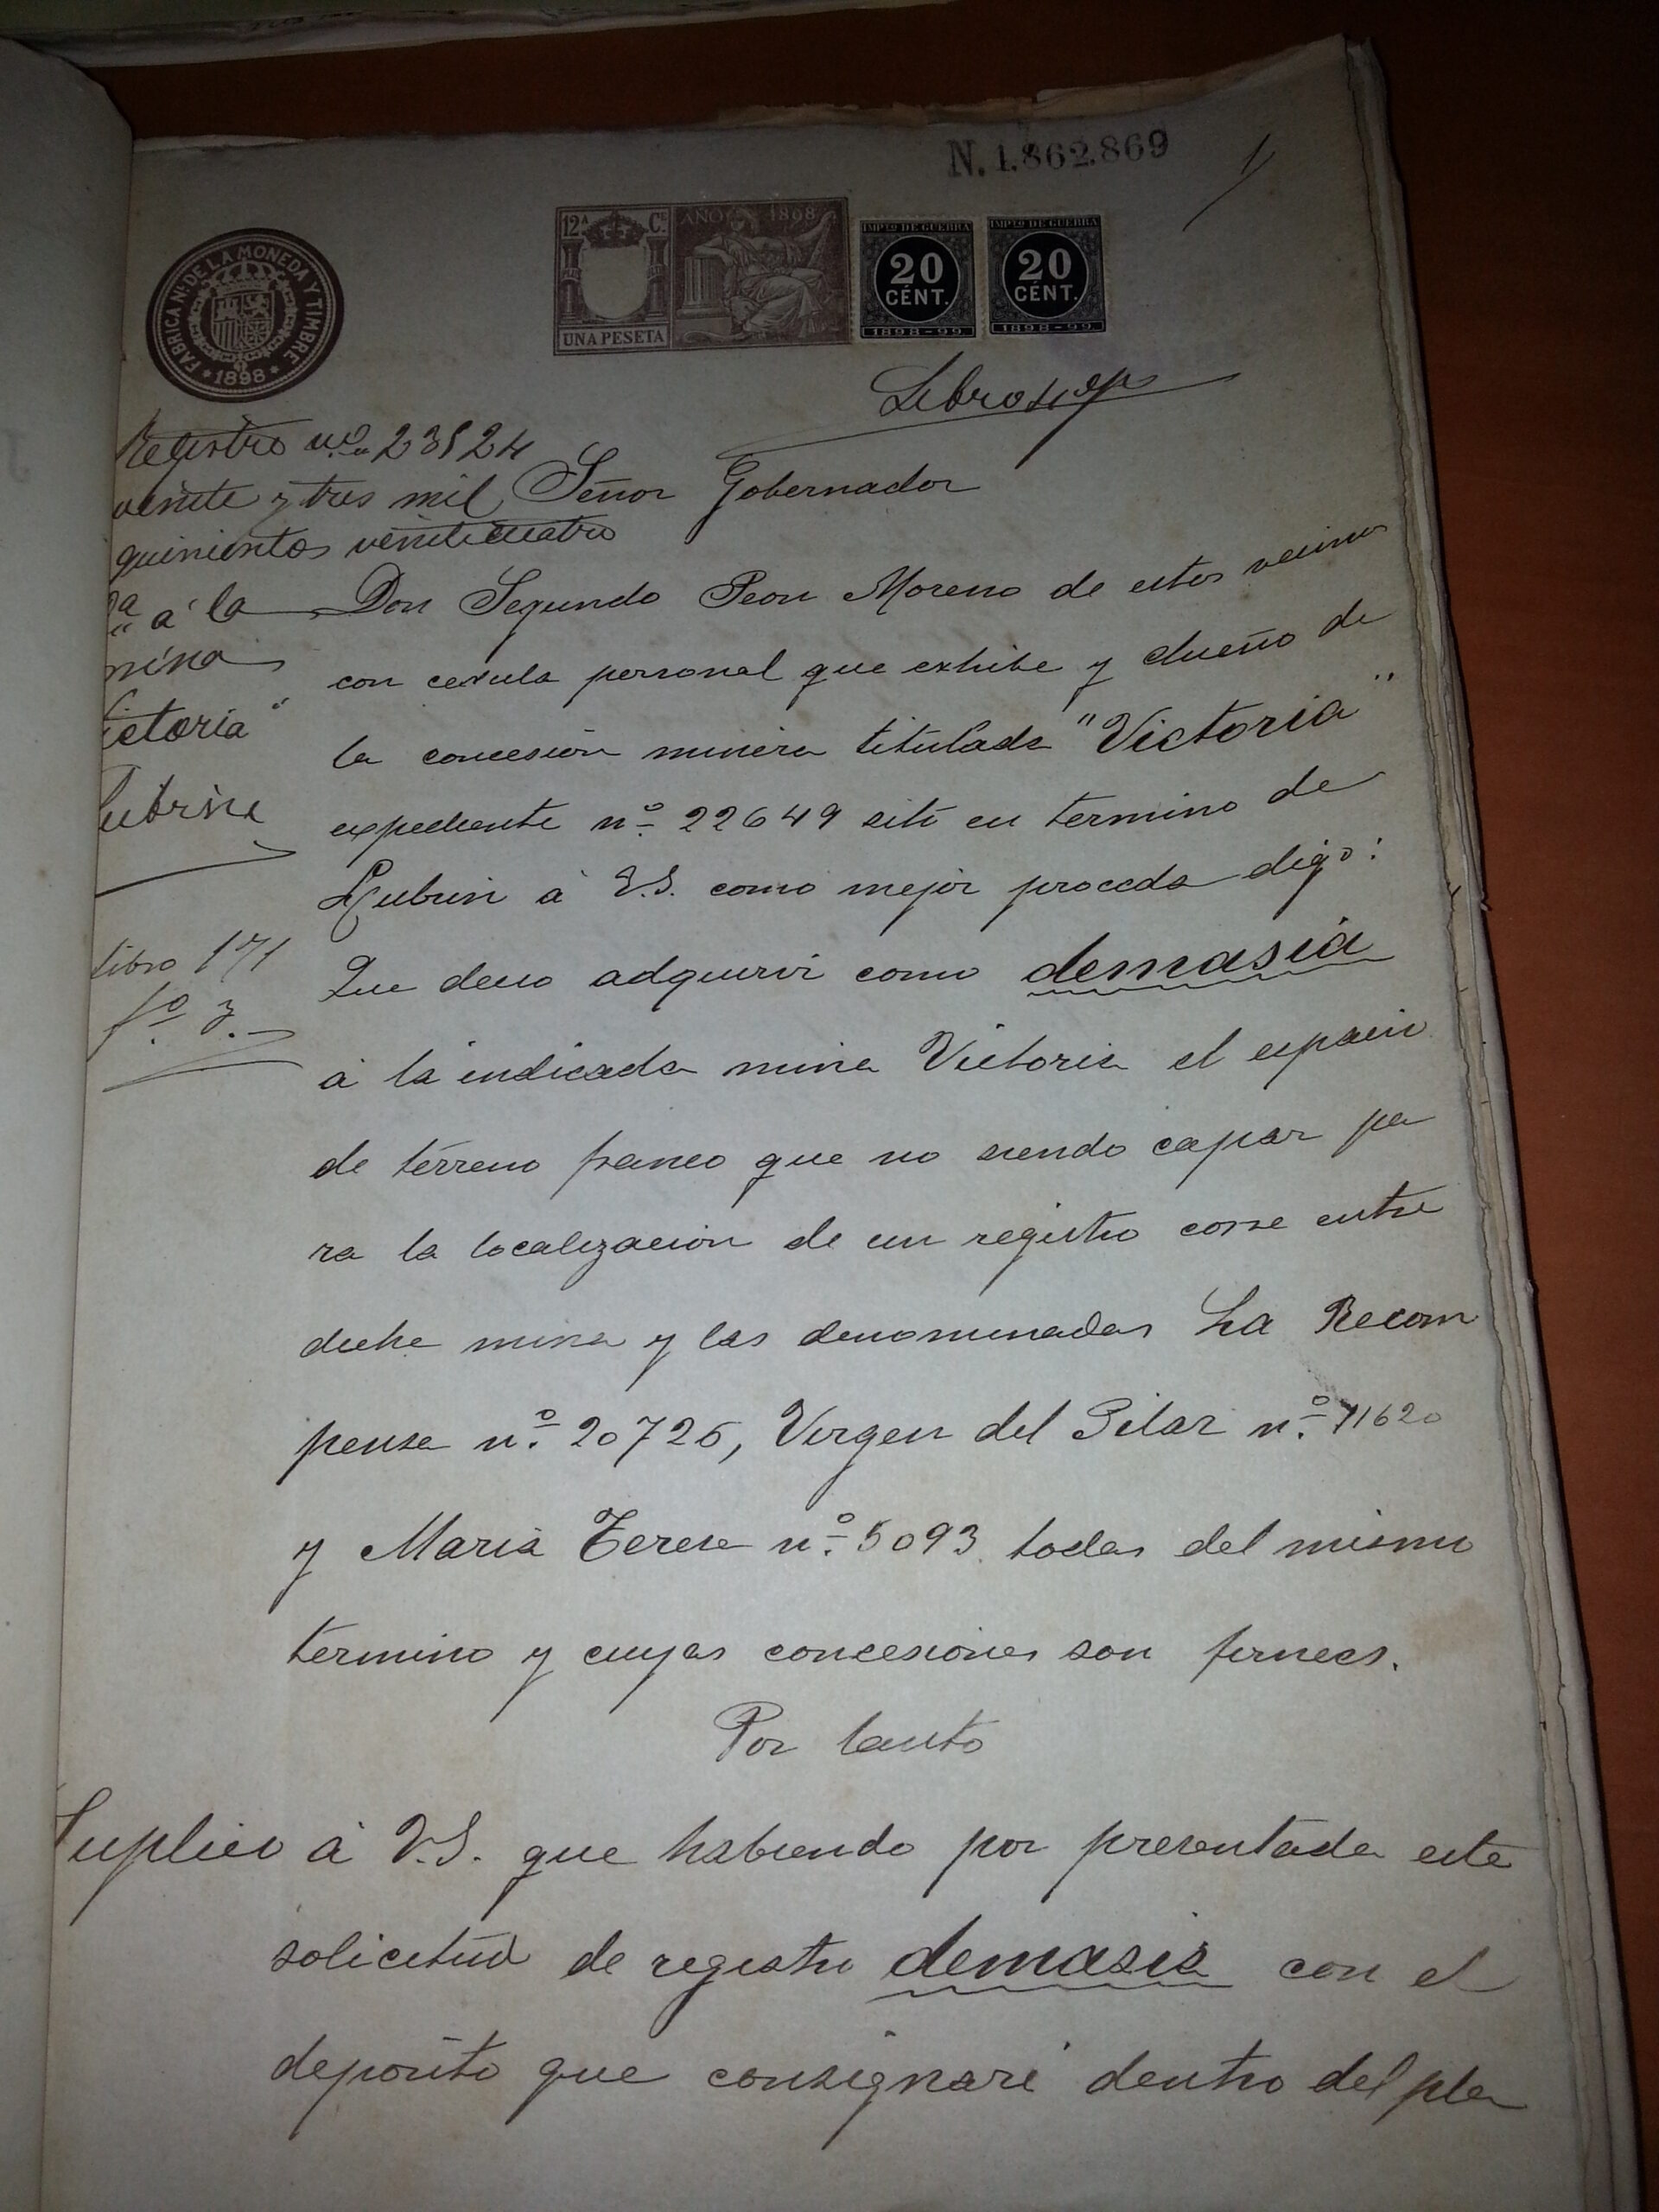 N. 1.862.869
1
FABRICA Nl. DE LA MONEDA Y TIMBRE
* 1898 *
12ª Cº.
AÑO 1898
UNA PESETA
IMPTO DE GUERRA
20
CÉNT.
1898-99
IMPTO DE GUERRA
20
CÉNT.
1898-99
Registro nº 23524
veinte y tres mil
quinientos veinticuatro
á la
mina
ictoria"
Lubrin
libro 171
fº 3.
Señor Gobernador
Don Segundo Peon Moreno de estos vecinos
con cedula personal que exhibe y dueño de
la concesión minera titulada "Victoria"
expediente nº 22649 sito en termino de
Lubrin á V.S. como mejor proceda digo:
Que deseo adquirir como demasia
á la indicada mina Victoria el espacio
de terreno franco que no siendo capaz pa
ra la localización de un registro corre entre
dicha mina y las denominadas La Recom
pensa nº 20726, Virgen del Pilar nº 11620
y Maria Teresa nº 5093 todas del mismo
termino y cuyas concesiones son firmes.
Por tanto
Suplico á V.S. que habiendo por presentada esta
solicitud de registro demasia con el
deposito que consignaré dentro del pla